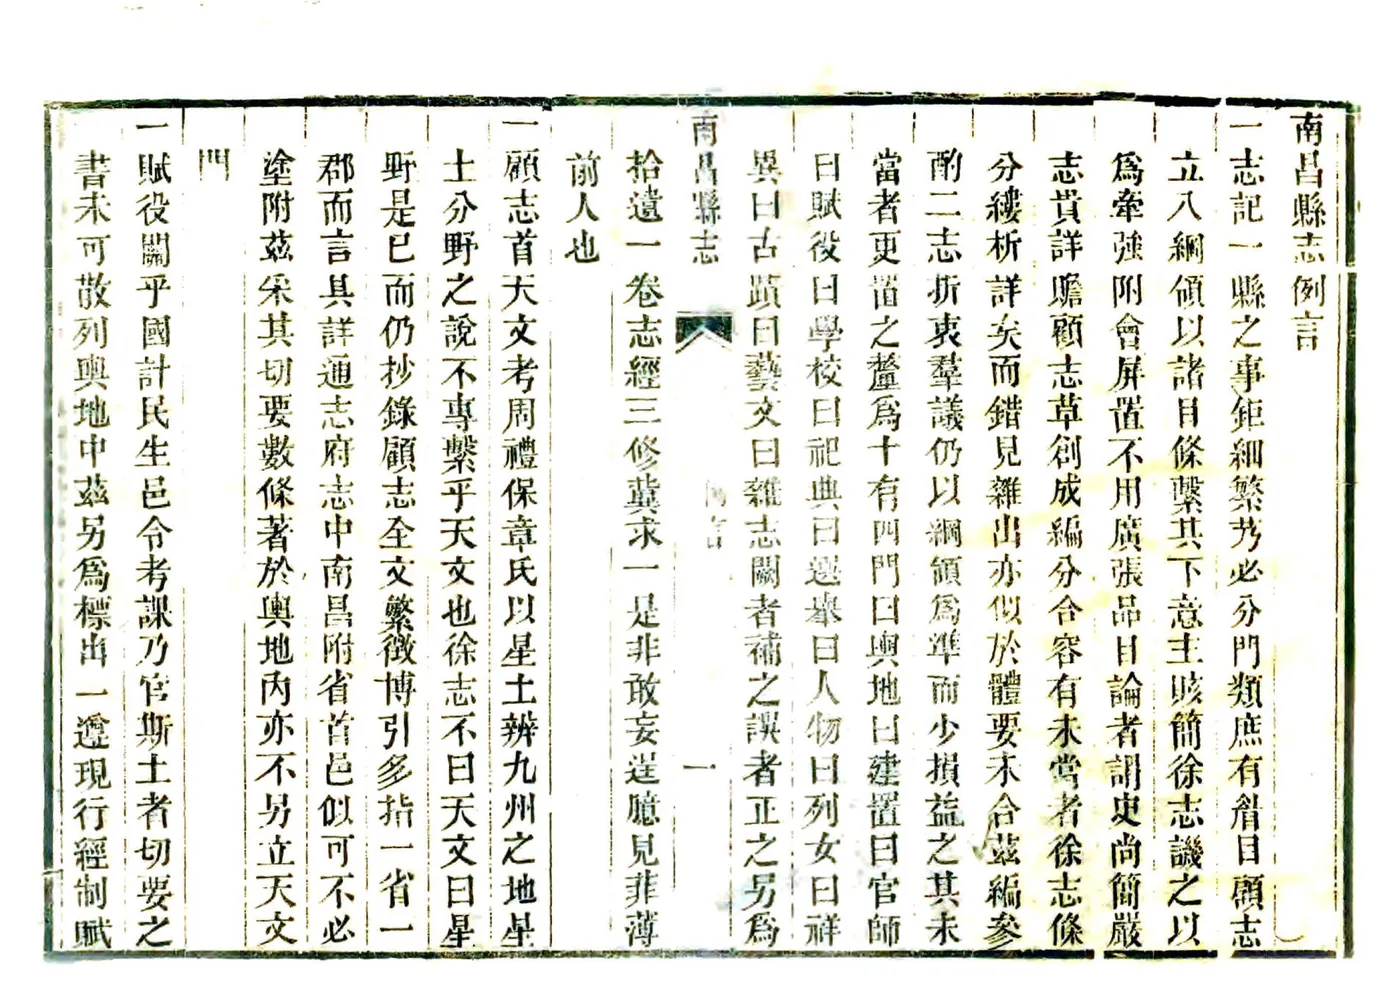 南昌縣志例言
一志記一縣之事鉅細繁艿必分門類庶有眉目顧志
立八綱領以諸目條繫其下意主賅簡徐志譏之以
爲牽強附會屏置不用廣張品目論者謂史尚簡嚴
志貴詳贍顧志草創成編分合容有未當者徐志條
分縷析詳矣而錯見雜出亦似於體要未合茲編參
酌二志折衷羣議仍以綱領爲準而少損益之其未
當者更置之釐爲十有四門曰輿地曰建置曰官師
曰賦役曰學校曰祀典曰選舉曰人物曰列女曰祥
異曰古蹟曰藝文曰雜志闕者補之誤者正之另爲
南昌縣志
例言
一
拾遺一卷志經三修冀求一是非敢妄逞臆見菲薄
前人也
一顧志首天文考周禮保章氏以星土辨九州之地星
土分野之說不專繫乎天文也徐志不曰天文曰星
野是已而仍抄錄顧志全文繁徵博引多指一省一
郡而言具詳通志府志中南昌附省首邑似可不必
塗附茲采其切要數條著於輿地內亦不另立天文
門
一賦役關乎國計民生邑令考課乃官斯土者切要之
書未可散列輿地中茲另爲標出一遵現行經制賦